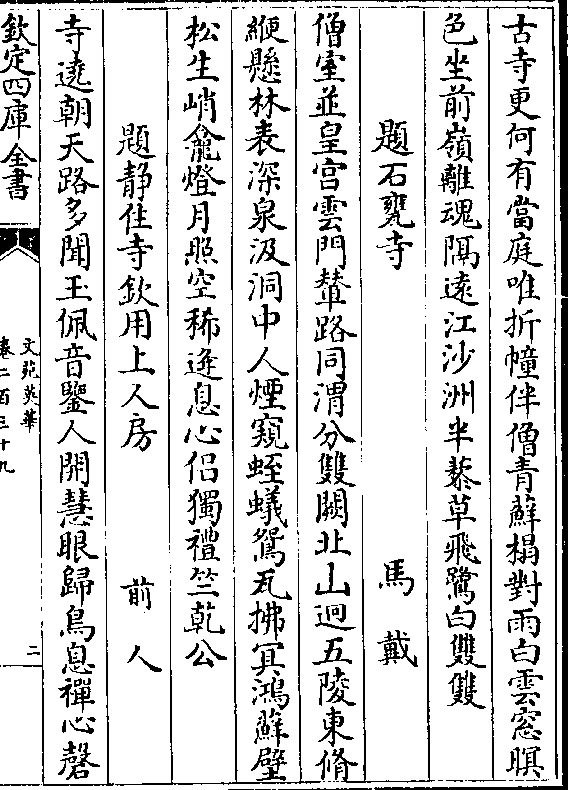 古寺更何有當庭唯折幢伴僧青蘚榻對雨白雲窓暝
色坐前嶺離魂隔遠江沙洲半藜草飛鷺白雙雙
題石甕寺 馬戴
僧室並皇宫雲門輦路同渭分雙闕北山迥五陵東脩
綆懸林表深泉汲洞中人煙窺蛭蟻鴛瓦拂冥鴻蘚壁
松生峭龕燈月照空稀逰息心侣獨禮竺乾公
題静住寺欽用上人房 前人
寺遶朝天路多聞玉佩音鑒人開慧眼歸鳥息禪心磬
欽定四庫全書
文苑英華
卷二百三十九
二